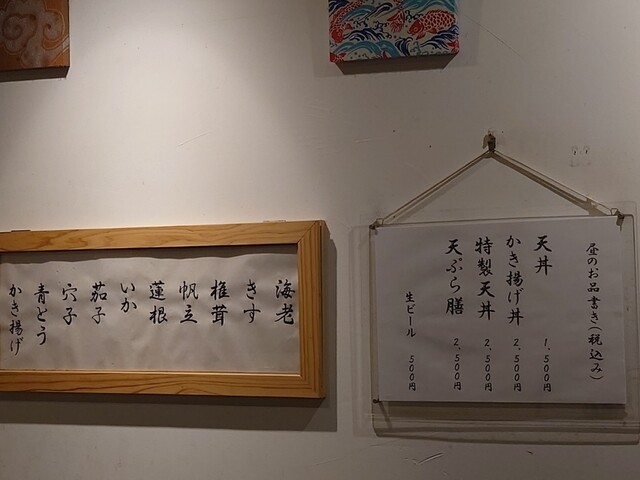 昼のお品書き(税込み)
天丼 1,500円
かき揚げ丼 2,500円
特製天丼 2,500円
天ぷら膳 2,500円
生ビール 500円
海老
きす
椎茸
帆立
蓮根
いか
茄子
穴子
青とう
かき揚げ